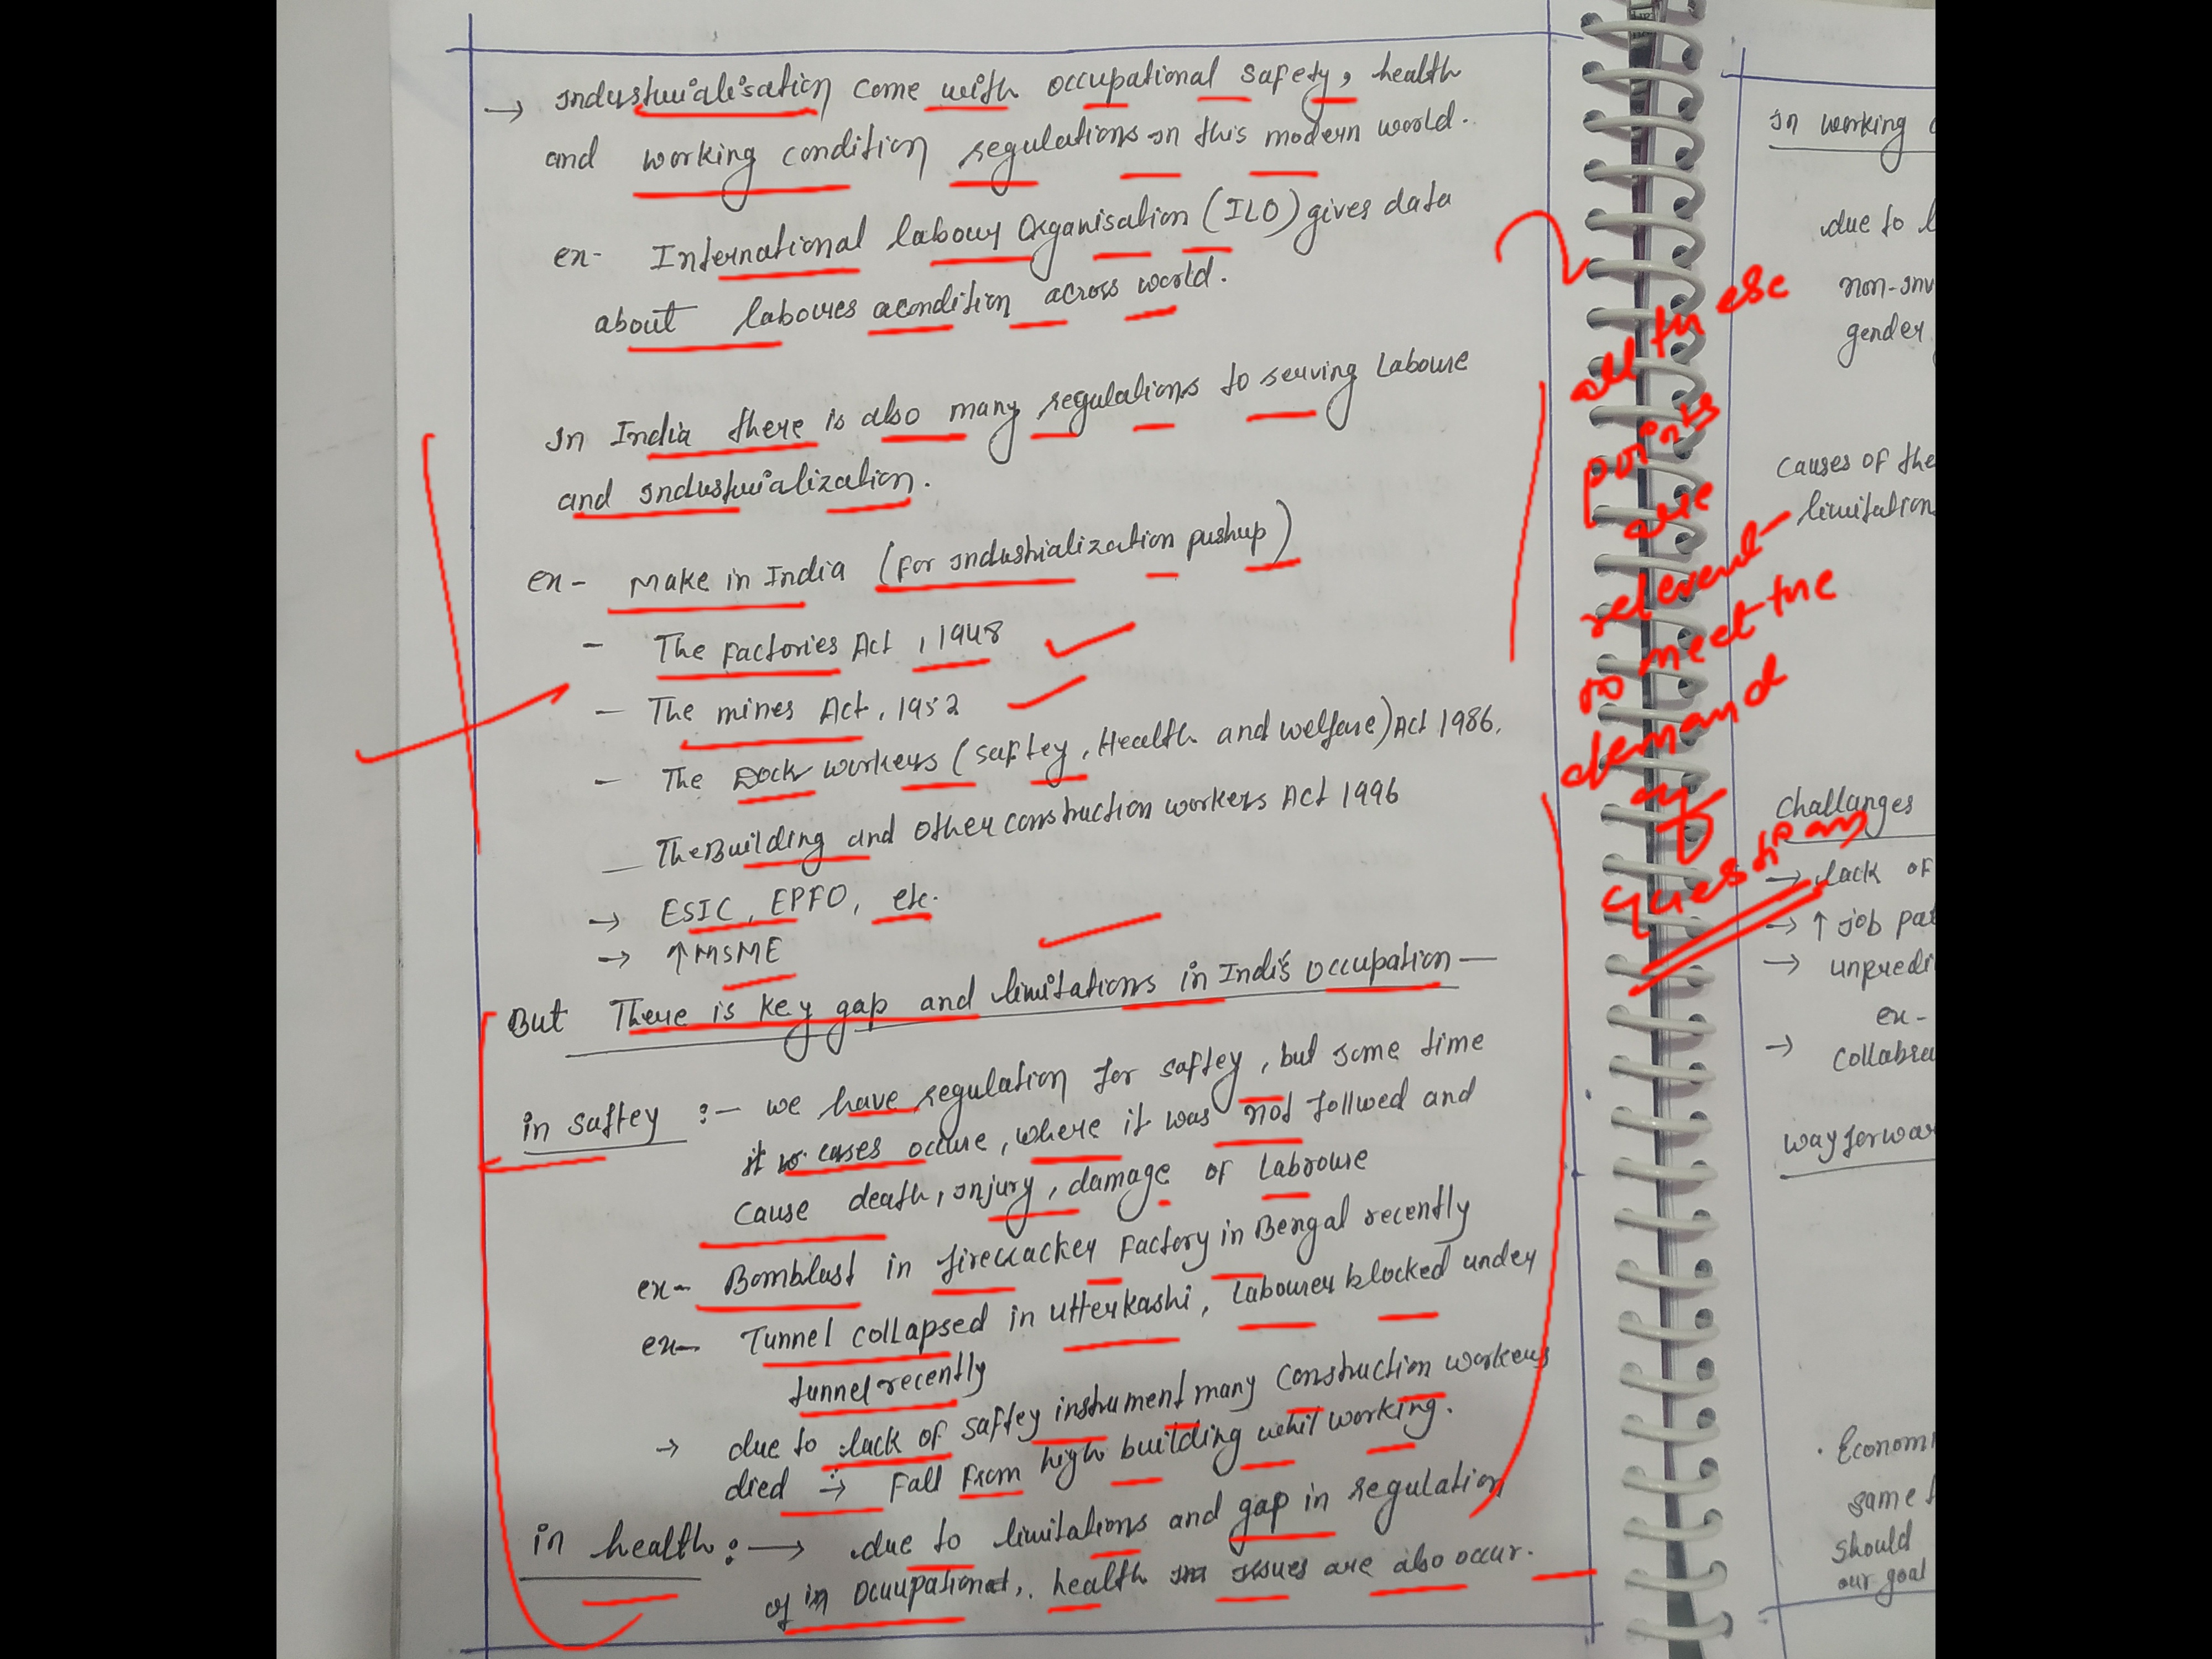 → Industrialisation come with occupational safety, health
and working condition regulations in this modern world.
ex- International labour Organisation (ILO) gives data
about laboures acondition across world.
In India there is also many regulations to serving Laboure
and industrialization.
ex- Make in India (for industrialization pushup)
- The Factories Act, 1948
- The mines Act, 1952
- The Dock workers (saftey, Health and welfare) Act 1986.
- The Building and other construction workers Act 1996
→ ESIC, EPFO, etc.
→ ↑ MSME
But There is key gap and limitations in Indi's occupation —
in saftey :- we have regulation for saftey, but some time
it cases occure, where it was not follwed and
cause death, injury, damage of Laboure
ex- Bomblast in firecracker factory in Bengal recently
ex- Tunnel collapsed in utterkashi, Labourer blocked under
tunnel recently
→ due to lack of saftey instrument many construction workers
died → Fall from high building whil working.
in health :→ due to limitations and gap in regulation
of in Occupational, health issues are also occur.
all these
points
are
relevent
to meet the
demand
of
question
in working
due to
gender
causes of the
limitation
challanges
→ lack of
→ ↑ job
→
ex-
→
way forwar
Econom
same
should
our goal